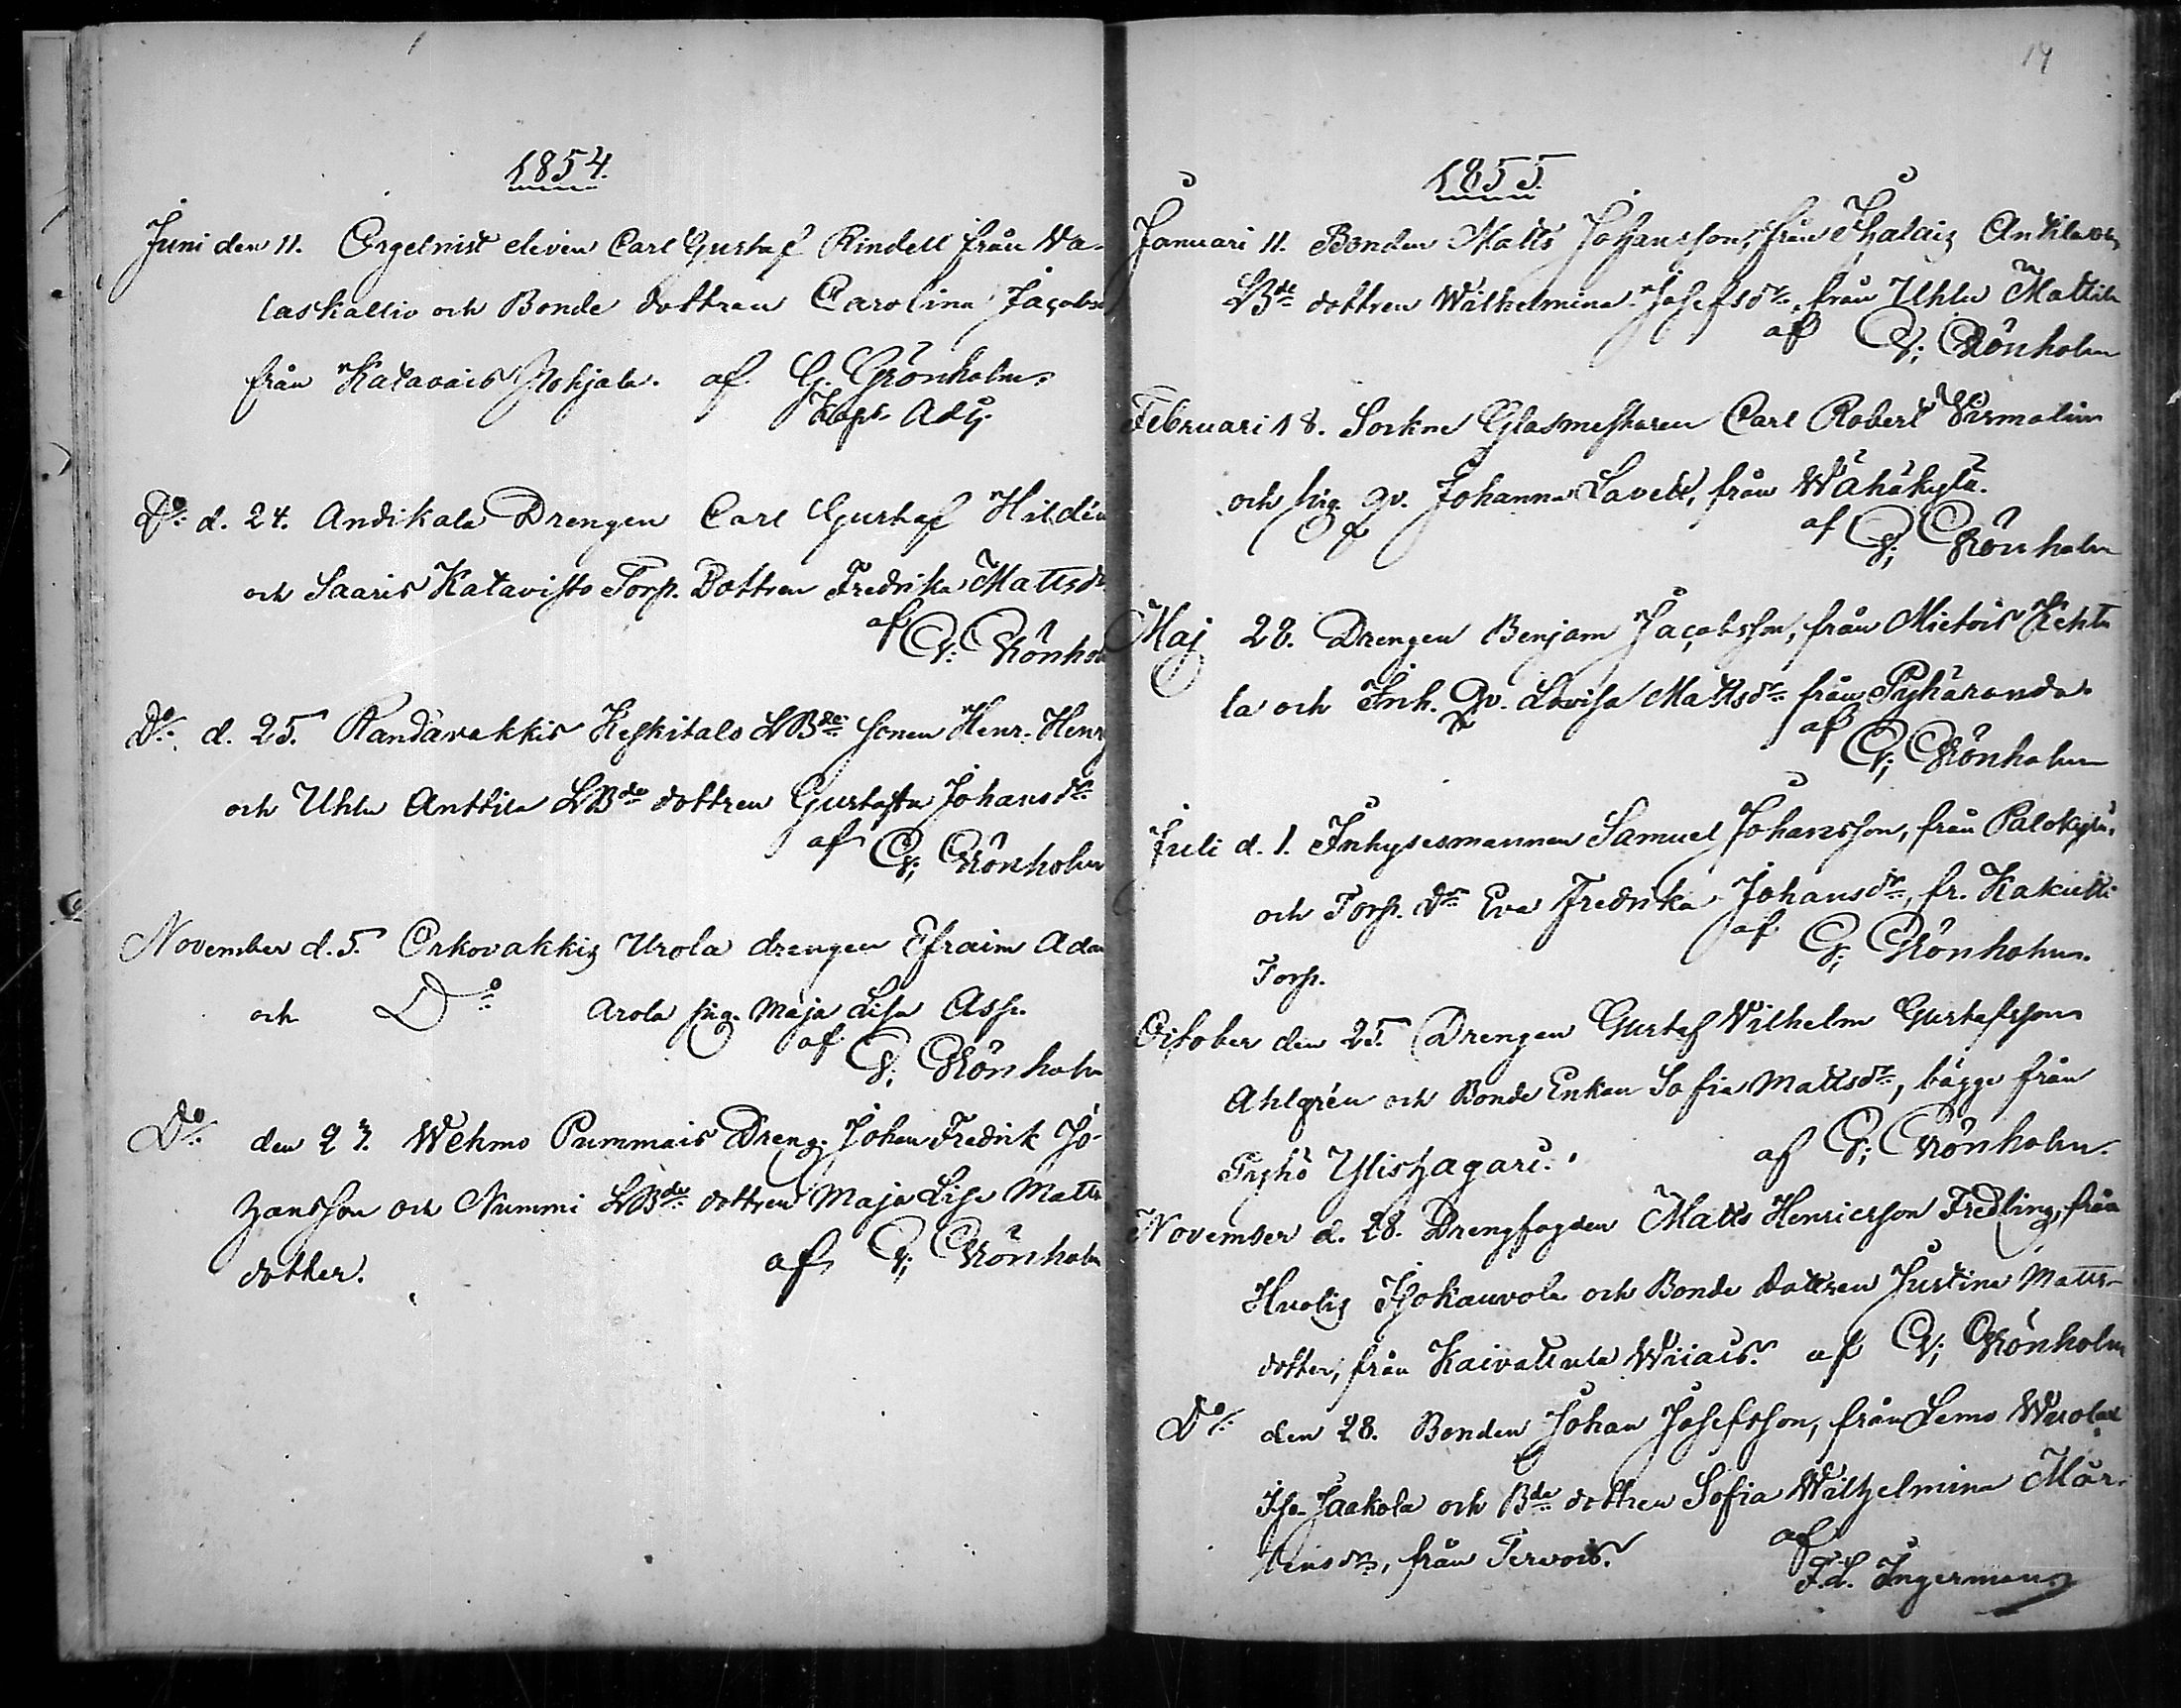 1854.
Juni den 11. Orgelnist eleven Carl Gustaf Rindell från Wa-
laskallio och Bonde dottren Carolina Jacobs
från Katavais Pohjala. af G. Grönholm.
Kapl. Adj.
Do d. 24. Andikala Drengen Carl Gustaf Hildén
och Saaris Katavisto Torp. Dottren Fredrika Mattsdr
af G. Grönhol
Do d. 25. Randavakkis Heskitalo LBde sonen Henr. Henr
och Uhlu Anttila LBde dottren Gustafva Johansdr
af G. Grönholm
November d. 5. Orkovakkis Urola drengen Efraim Adam
och Do Arola pig. Maja Lisa Ass.
af G. Grönholm
Do den 27. Wehmo Pummais Dreng. Johan Fredrik Jo-
hansson och Nummi LBde dottren Maja Lisa Matts
dotter. af G. Grönholm
14
1855.
Januari 11. Bonden Matts Johansson, från Anttila och
LBde dottren Wilhelmina Josefsdr, från Uhlu Mattila
af G. Grönholm
Februari 18. Sockne Glasmestaren Carl Robert Virmalin
och pig. qv. Johanna Lavell, från Wähäkylä.
af G. Grönholm
Maj 28. Drengen Benjam Jacobsson, från Mietois Keht
la och Inh. Qv. Lovisa Mattsdr från Pyhäranda.
af G. Grönholm
Juli d. 1. Inhysesmannen Samuel Johansson, från Palokylä,
och Torp. dr Eva Fredrika Johansdr, fr. Kakutti
af G. Grönholm.
Torp.
October den 25. Drengen Gustaf Wilhelm Gustafsson
Ahlgrén och Bonde Enkan Sofia Mattsdr, bägge från
Pyhö Ylishagari. af G. Grönholm.
November d. 28. Drengfogden Matts Henricsson Fredling, från
Huolis Isokauvola och Bonde dottren Justina Matts-
dotter, från Kaivattula Wiiais. af G. Grönholm
Do den 28. Bonden Johan Josefsson, från Lemo
Iso-Jaakola och Bde dottren Sofia Wilhelmina Mår-
tensdr, från Tervois. af
F.L. Ingerman